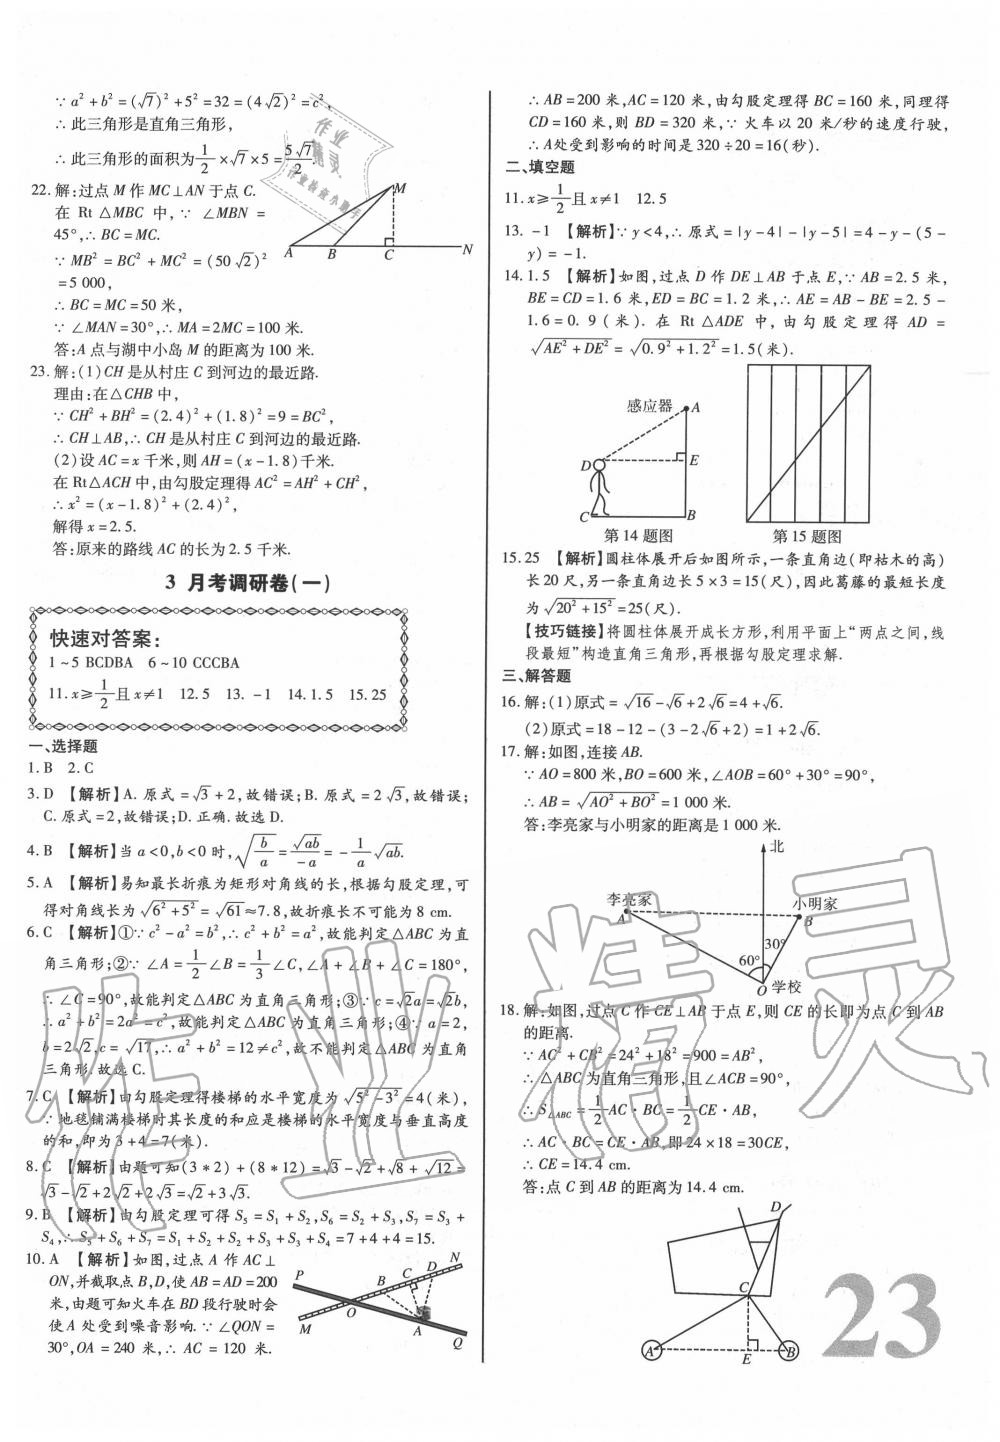 ∵ a²+b²=(√7)²+5²=32=(4√2)²=c²,
∴ 此三角形是直角三角形,
∴ 此三角形的面积为1/2×√7×5=5√7/2.
22. 解:过点 M 作 MC⊥AN 于点 C.
在 Rt △MBC 中,∵ ∠MBN =
45°,∴ BC=MC.
∵ MB²=BC²+MC²=(50√2)²
=5 000,
∴ BC=MC=50 米,
∵ ∠MAN=30°,∴ MA=2MC=100 米.
答:A 点与湖中小岛 M 的距离为 100 米.
M
A
B
C
N
23. 解:(1)CH 是从村庄 C 到河边的最近路.
理由:在△CHB 中,
∵ CH²+BH²=(2.4)²+(1.8)²=9=BC²,
∴ CH⊥AB,∴ CH 是从村庄 C 到河边的最近路.
(2)设 AC=x 千米,则 AH=(x-1.8)千米.
在 Rt△ACH 中,由勾股定理得 AC²=AH²+CH²,
∴ x²=(x-1.8)²+(2.4)²,
解得 x=2.5.
答:原来的路线 AC 的长为 2.5 千米.
3 月考调研卷(一)
快速对答案:
1~5 BCDBA 6~10 CCCBA
11. x≥1/2且 x≠1 12. 5 13. -1 14. 1.5 15. 25
一、选择题
1. B 2. C
3. D 【解析】A. 原式=√3+2,故错误;B. 原式=2√3,故错误;
C. 原式=2,故错误;D. 正确.故选 D.
4. B 【解析】当 a<0,b<0 时,√(b/a)=√ab/-a=-1/a√ab.
5. A 【解析】易知最长折痕为矩形对角线的长,根据勾股定理,可
得对角线长为√(6²+5²)=√61≈7.8,故折痕长不可能为 8 cm.
6. C 【解析】①∵ c²-a²=b²,∴ c²+b²=a²,故能判定△ABC 为直
角三角形;②∵ ∠A=1/2∠B=1/3∠C,∠A+∠B+∠C=180°,
∴ ∠C=90°,故能判定△ABC 为直角三角形;③∵ c=√2a=√2b,
∴ a²+b²=2a²=c²,故能判定△ABC 为直角三角形;④∵ a=2,
b=2√2,c=√17,∴ a²+b²=12≠c²,故不能判定△ABC 为直角
三角形.故选 C.
7. C 【解析】由勾股定理得楼梯的水平宽度为√(5²-3²)=4(米),
∵ 地毯铺满楼梯时其长度的和应是楼梯的水平宽度与垂直高度
的和,即为 3+4=7(米).
8. C 【解析】由题可知(3*2)+(8*12)=√3-√2+√8+√12=
√3-√2+2√2+2√3=√2+3√3.
9. B 【解析】由勾股定理可得 S₅=S₁+S₂,S₆=S₂+S₃,S₇=S₃+
S₄,∴ S₅+S₆+S₇=S₁+S₂+S₂+S₃+S₃+S₄=7+4+4=15.
10. A 【解析】如图,过点 A 作 AC⊥
ON,并截取点 B,D,使 AB=AD=200
米,由题可知火车在 BD 段行驶时会
使 A 处受到噪音影响.∵ ∠QON=
30°,OA=240 米,∴ AC=120 米.
P
B
C
D
N
M
O
A
Q
∴ AB=200 米,AC=120 米,由勾股定理得 BC=160 米,同理得
CD=160 米,则 BD=320 米,∵ 火车以 20 米/秒的速度行驶,
∴ A 处受到影响的时间是 320÷20=16(秒).
二、填空题
11. x≥1/2且 x≠1 12. 5
13. -1 【解析】∵ y<4,∴ 原式=|y-4|-|y-5|=4-y-(5-
y)=-1.
14. 1.5 【解析】如图,过点 D 作 DE⊥AB 于点 E,∵ AB=2.5 米,
BE=CD=1.6 米,ED=BC=1.2 米,∴ AE=AB-BE=2.5-
1.6=0.9(米). 在 Rt △ADE 中,由勾股定理得 AD =
√(AE²+DE²)=√(0.9²+1.2²)=1.5(米).
感应器
A
D
E
C
B
第 14 题图
第 15 题图
15. 25 【解析】圆柱体展开后如图所示,一条直角边(即枯木的高)
长 20 尺,另一条直角边长 5×3=15(尺),因此葛藤的最短长度
为√(20²+15²)=25(尺).
【技巧链接】将圆柱体展开成长方形,利用平面上“两点之间,线
段最短”构造直角三角形,再根据勾股定理求解.
三、解答题
16. 解:(1)原式=√16-√6+2√6=4+√6.
(2)原式=18-12-(3-2√6+2)=1+2√6.
17. 解:如图,连接 AB.
∵ AO=800 米,BO=600 米,∠AOB=60°+30°=90°,
∴ AB=√(AO²+BO²)=1 000 米.
答:李亮家与小明家的距离是 1 000 米.
北
李亮家
A
小明家
B
30°
60°
O 学校
18. 解:如图,过点 C 作 CE⊥AB 于点 E,则 CE 的长即为点 C 到 AB
的距离.
∵ AC²+CB²=24²+18²=900=AB²,
∴ △ABC 为直角三角形,且∠ACB=90°,
∴ S△ABC=1/2AC·BC=1/2CE·AB,
∴ AC·BC=CE·AB,即 24×18=30CE,
∴ CE=14.4 cm.
答:点 C 到 AB 的距离为 14.4 cm.
D
C
A
E
B
23
作业精灵
作业检查小助手
作业精灵